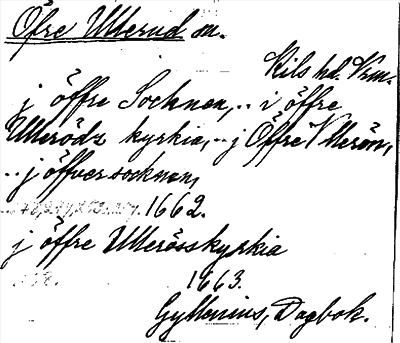 Öfre Ullerud sn.
Kils hd. Vrm.
j öffre Sochnen, .. i öffre
Ullerödz kyrkia, .. j Öffre Ullerön,
.. j öffversocknen,
1662.
j öffre Ullerösskyrkia
1663.
Gyllenius, Dagbok.